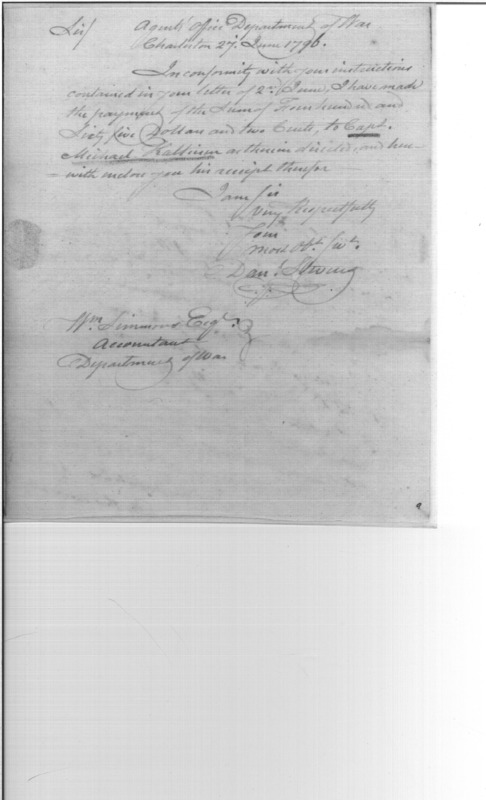 Sir/ Agents' Office Department of War
Charleston 27. June 1796.
In conformity with your instructions
contained in your letter of 2nd June, I have made
the payment of the Sum of Four hundred and
Sixty five Dollars and two Cents, to Capt.
Michael Kalteisen as therein directed, and here-
-with inclose you his receipt therefor
I am Sir
Very Respectfully
Your
most Obt. Svt.
Danl. Stevens
Wm. Simmons Esqr.
Accountant
Department of War